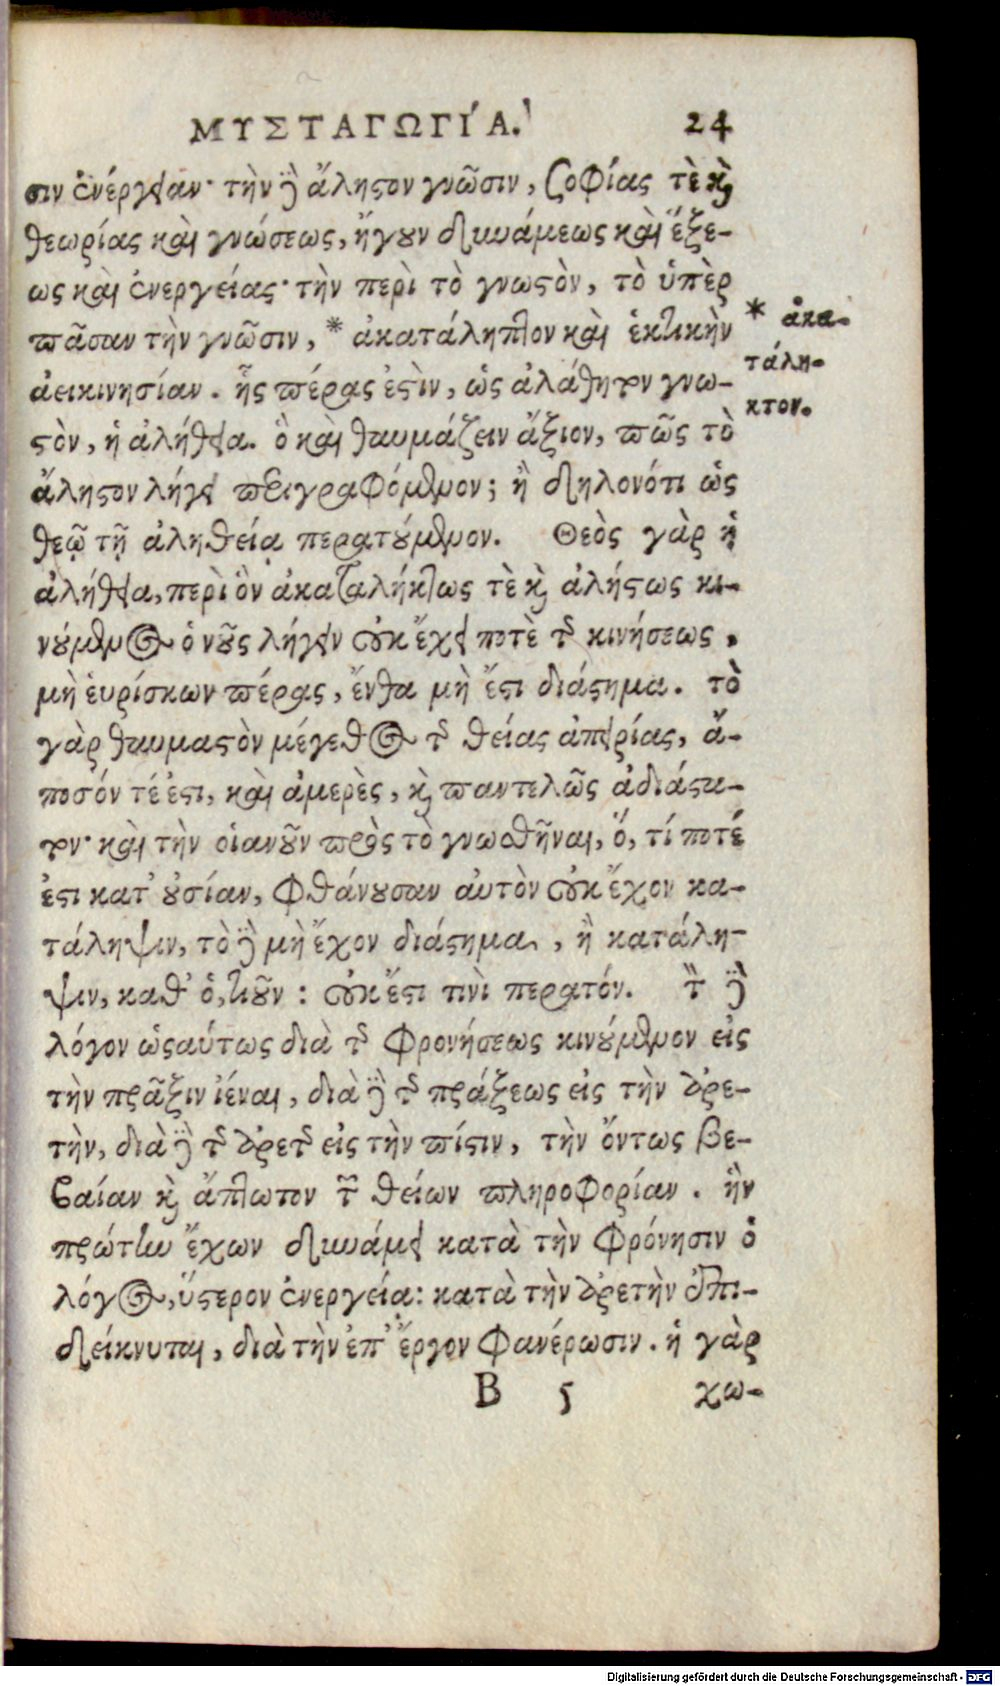 ΜΥΣΤΑΓΩΓΙΑ. 24
σιν ἐνέργειαν· τὴν δὲ ἄληστον γνῶσιν, σοφίας τὲ καὶ
θεωρίας καὶ γνώσεως, ἤγουν δυνάμεως καὶ ἕξε-
ως καὶ ἐνεργείας· τὴν περὶ τὸ γνωστὸν, τὸ ὑπὲρ
πᾶσαν τὴν γνῶσιν, * ἀκατάληπτον καὶ ἑκτικὴν
ἀεικινησίαν. ἧς πέρας ἐστὶν, ὡς ἀλάθητον γνω-
στὸν, ἡ ἀλήθεια. ὃ καὶ θαυμάζειν ἄξιον, πῶς τὸ
ἄληστον λήγει περιγραφόμενον; ἢ δηλονότι ὡς
θεῷ τῇ ἀληθείᾳ περατούμενον. Θεὸς γὰρ ἡ
ἀλήθεια, περὶ ὃν ἀκαταλήκτως τὲ καὶ ἀλήστως κι-
νούμενος ὁ νοῦς λήγειν οὐκ ἔχει ποτὲ τῆς κινήσεως,
μὴ εὑρίσκων πέρας, ἔνθα μὴ ἔστι διάστημα. τὸ
γὰρ θαυμαστὸν μέγεθος τῆς θείας ἀπειρίας, ἄ-
ποσόν τέ ἐστι, καὶ ἀμερὲς, καὶ παντελῶς ἀδιάστα-
τον· καὶ τὴν οἱανοῦν πρὸς τὸ γνωσθῆναι, ὅ, τί ποτέ
ἐστι κατ' οὐσίαν, φθάνουσαν αὐτὸν οὐκ ἔχον κα-
τάληψιν, τὸ δὲ μὴ ἔχον διάστημα, ἢ κατάλη-
ψιν, καθ' ὁ,τιοῦν: οὐκ ἔστι τινὶ περατόν. τὸν δὲ
λόγον ὡσαύτως διὰ τῆς φρονήσεως κινούμενον εἰς
τὴν πρᾶξιν ἰέναι, διὰ δὲ τῆς πράξεως εἰς τὴν ἀρε-
τὴν, διὰ δὲ τῆς ἀρετῆς εἰς τὴν πίστιν, τὴν ὄντως βε-
βαίαν καὶ ἄπτωτον τῶν θείων πληροφορίαν. ἣν
πρώτην ἔχων δυνάμει κατὰ τὴν φρόνησιν ὁ
λόγος, ὕστερον ἐνεργείᾳ: κατὰ τὴν ἀρετὴν ἐπι-
δείκνυται, διὰ τὴν ἐπ' ἔργον φανέρωσιν. ἡ γὰρ
B 5 χω-
* ἀκα-
τάλη-
κτον.
Digitalisierung gefördert durch die Deutsche Forschungsgemeinschaft - DFG